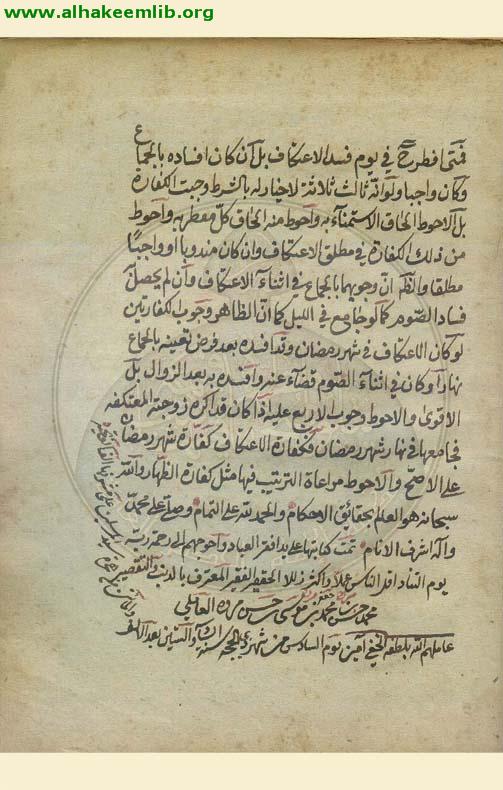 www.alhakeemlib.org
فمتى افطر ح في يوم فسد الاعتكاف بل ان كان افساده بالجماع
وكان واجبا ولو انه ثالث ثلاثة لا خيار له بالشرط وجبت الكفارة
بل الاحوط الحاق الاستمناء به واحوط منه الحاق كل مفطر به واحوط
من ذلك الكفارة في مطلق الاعتكاف وان كان مندوبا او واجبا
مطلقا والظم ان وجوبها بالجماع في اثناء الاعتكاف وان لم يحصل
فساد الصوم كما لو جامع في الليل كما ان الظاهر وجوب الكفارتين
لو كان الاعتكاف في شهر رمضان وقد افسده بعد فرض تعينه بالجماع
نهارا او كان في اثناء الصوم قضاء عنه وافسده به بعد الزوال بل
الاقوى والاحوط وجوب الاربع عليه اذا كان قد اكره زوجته المعتكفة
فجامعها في نهار شهر رمضان فكفارة الاعتكاف كفارة شهر رمضان
على الاصح والاحوط مراعاة الترتيب فيها مثل كفارة الظهار والله
سبحانه هو العالم بحقايق الاحكام والحمد لله على التمام وصلى على محمد
واله اشرف الانام تمت كتابتها على يد افقر العباد واحوجهم الى رحمة ربه
يوم التناد اقل الناس عملا واكثر زللا الحقير الفقير المعترف بالذنب والتقصير
محمد حسن بن محمد بن موسى بن حسن مروه العاملي
عاملهم الله بلطفه الخفي آمين يوم السادس من شهر ذي الحجة سنة والستين بعد الالف